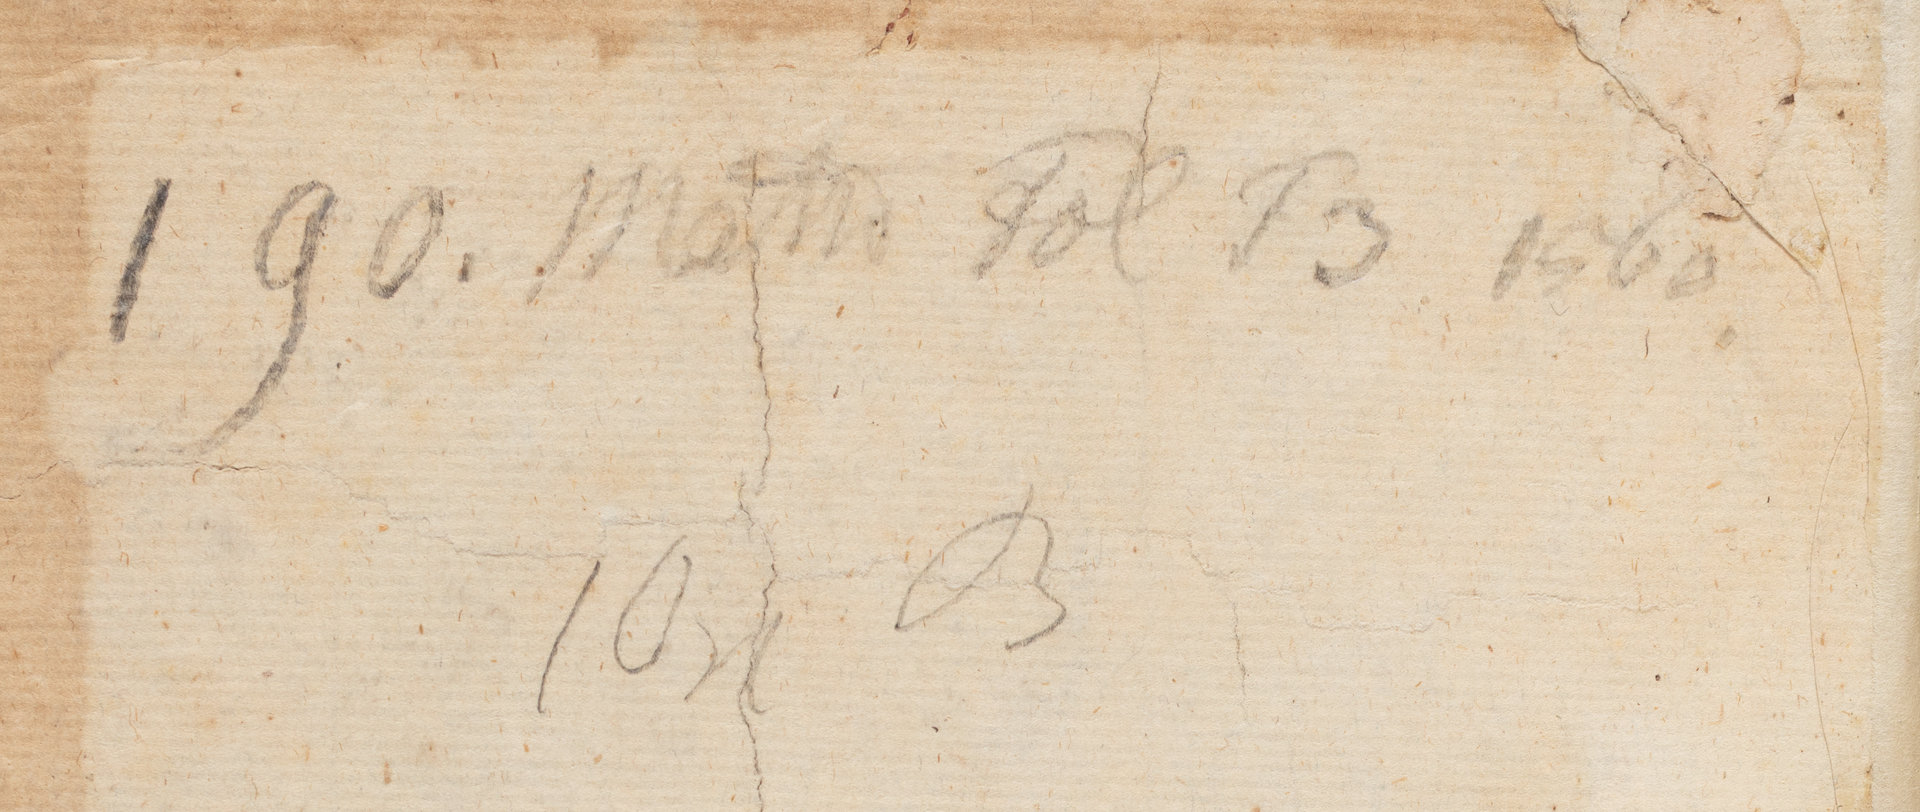 190. Math Fol T3 1560
10x B